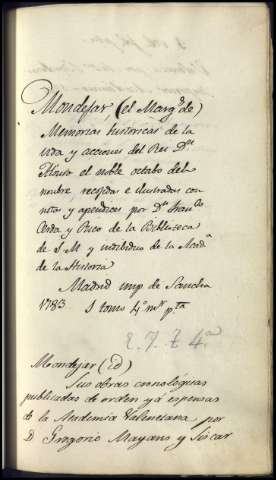 Mondejar, (el Marq.s de)
Memorias historicas de la
vida y acciones del Rei D.n
Alonso el noble octabo del
nombre, recojidas e ilustradas con
notas y apendices por D.n Fran.co
Cerda y Rico de la Biblioteca
de S. M. y individuo de la Acad.a
de la Historia
Madrid imp. de Sancha
1783. 1 tomo 4.o m.r p.ta
E. 7. t 4.a
Mondejar (id)
Sus obras cronológicas
publicadas de orden y á espensas
de la Academia Valenciana, por
D Gregorio Mayans y Siscar